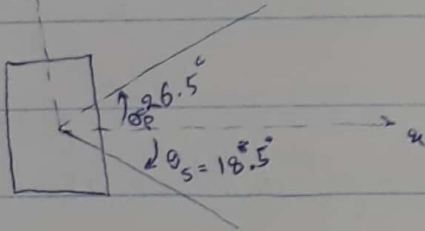 θp 26.5°
θs = 18.5°
x